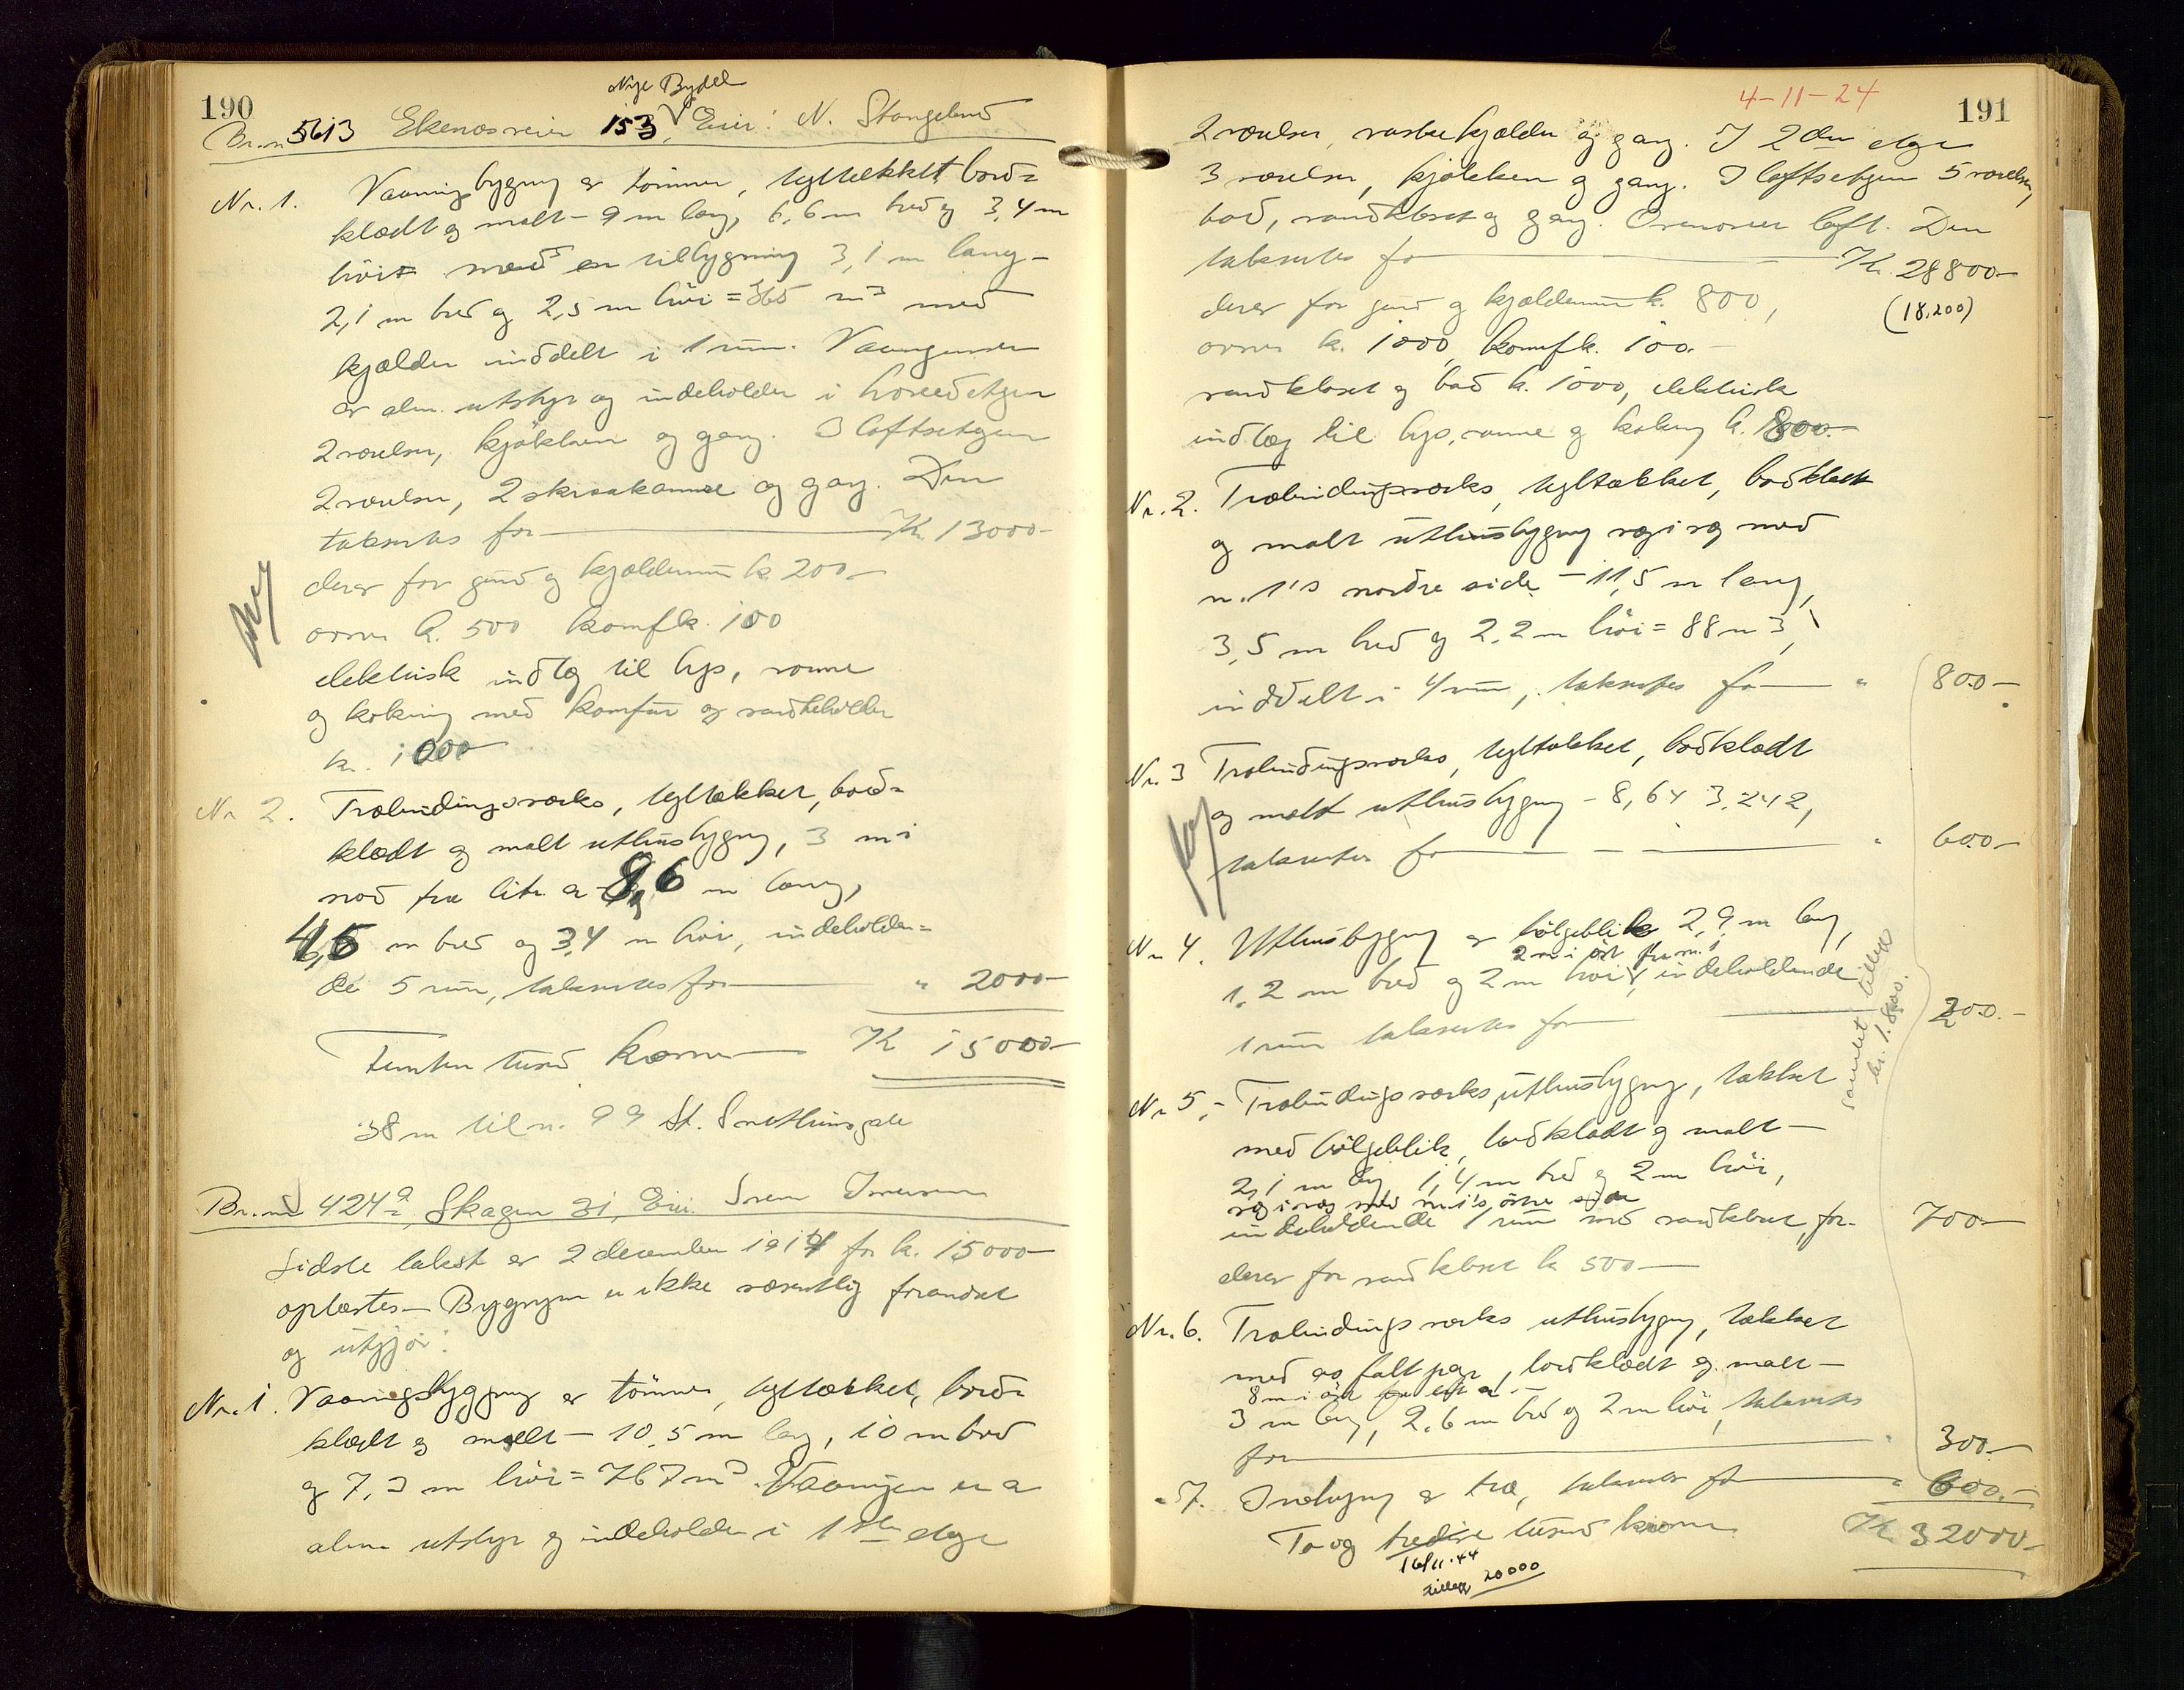 190
Nye Bydel
Br.nr 5613 Ekenæsveien 153, Eier: N. Stangeland
Nr. 1. Vaaningsbygning av tømmer, tegltækket, bord=
klædt og malt – 9 m lang, 6,6 m bred og 3,4 m
høi med en tilbygning 3,1 m lang –
2,1 m bred og 2,5 m høi = 365 m³ med
kjælder inddelt i 1 rum. Vaaningen
av alm. utstyr og indeholder i hovedetagen
2 værelser, kjøkken og gang. I loftsetagen
2 værelser, 2 skraakammer og gang. Den
takseres for Kr. 13000-
derav for grund og kjældermur kr. 200-
ovner kr. 500 komf kr. 100
elektrisk indlæg til lys, varme
og kokning med komfur og vandbeholder
kr. 1000
Nr 2. Træbindingsverks, tegltækket, bord=
klædt og malt uthusbygning, 3 m i
nord fra litr a 8,6 m lang,
4,5 m bred og 3,4 m høi, indeholden=
de 5 rum, takseres for " 2000-
Femten tusend kroner Kr 15000-
38 m til nr. 99 St. Svithunsgate
Br.nr 424a, Skagen 31, Eier: Sven Iversen
Sidste takst av 2 december 1914 for kr. 15000-
oplæstes – Bygningen er ikke væsentlig forandret
og utgjør:
Nr. 1. Vaaningsbygning av tømmer, tegltækket, bord=
klædt og malt – 10,5 m lang, 10 m bred
og 7,3 m høi = 767 m³. Vaaningen er av
alm utstyr og indeholder i 1ste etage
4-11-24
191
2 værelser, vaskekjælder og gang. I 2den etage
3 værelser, kjøkken og gang. I loftsetagen 5 værelser,
bad, vandkloset og gang. Ovenover loft. Den
takseres for Kr. 28800-
(18,200)
derav for grund og kjældermur kr. 800,
ovner kr. 1000, komf kr. 100.-
vandkloset og bad kr. 1000, elektrisk
indlæg til lys, varme og kokning kr. 800.-
Nr. 2. Træbindingsverks, tegltækket, bordklædt
og malt uthusbygning væg i væg med
nr. 1's nordre side – 11,5 m lang,
3,5 m bred og 2,2 m høi = 88 m³,
inddelt i 4 rum, takseres for " 800-
Nr. 3 Træbindingsverks, tegltækket, bordklædt
og malt uthusbygning – 8,6 x 3,2 x 2,
takseres for " 600-
Nr. 4. Uthusbygning av bølgeblik 2,9 m lang,
2 m i øst fra nr. 1
1,2 m bred og 2 m høi, indeholdende
1 rum takseres for 200.-
Nr 5. Træbindingsverks uthusbygning, tækket
med bølgeblik, bordklædt og malt –
2,1 m lang, 1,4 m bred og 2 m høi,
væg i væg med nr. 1's østre side
indeholdende 1 rum med vandkloset, for 700-
derav for vandkloset kr 500-
Nr. 6. Træbindingsverks uthusbygning, tækket
med asfaltpap, bordklædt og malt –
8 m i øst fra litr a –
3 m lang, 2,6 m bred og 2 m høi, takseres
for " 300-
" 7. Indhegning av træ, takseres for " 600.-
To og tredive tusend kroner Kr. 32000-
16/11-44
tillegg 20 000
samlet tillegg
kr. 1.800.